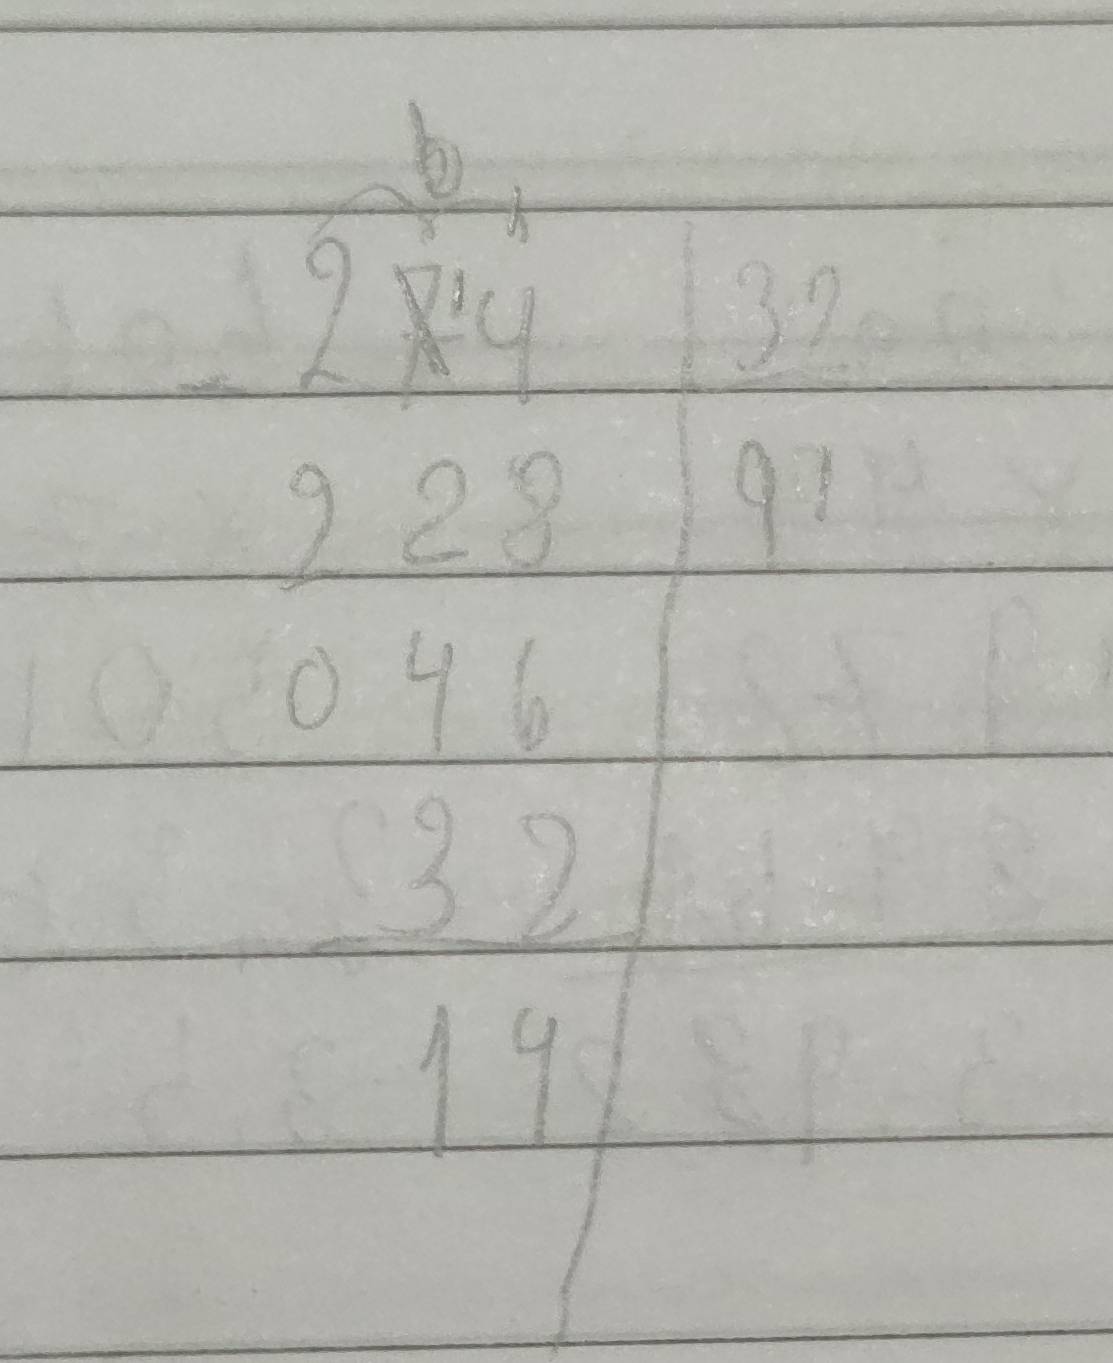 6
274 | 32
228 | 91
046
32
14